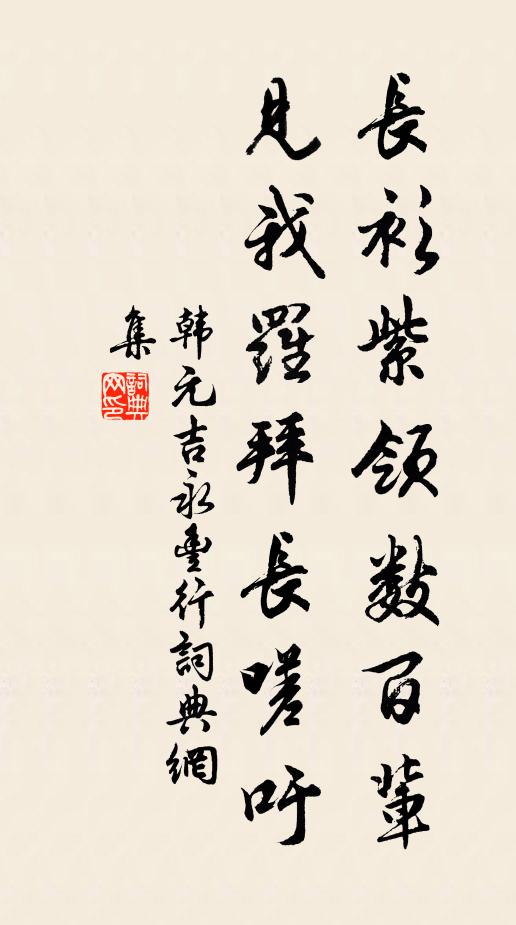 長衫紫領數百輩
見我羅拜長嗟吁
韩元吉永豊行詞典網
集
詞典网印